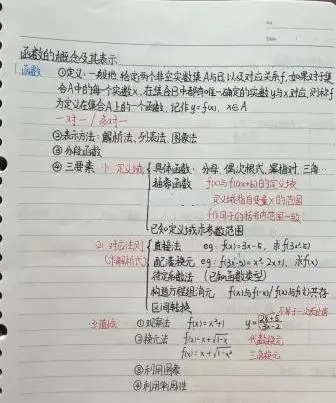 函数的概念及其表示
1.函数 ①定义:一般地,给定两个非空实数集A与B,以及对应关系f,如果对于集
合A中的每一个实数x,在集合B中都有唯一确定的实数y与x对应,则称f
为定义在集合A上的一个函数,记作y=f(x), x∈A
一对一/多对一
②表示方法:解析法、列表法、图象法
③分段函数
④三要素 1) 定义域 具体函数:分母、偶次根式、幂指对、三角…
抽象函数 f(x)与f(ax+b)的定义域
定义域指自变量x的范围
f作用下的括号内范围一致
已知定义域求参数范围
2) 对应法则 直接法 eg: f(x)=3x-5, 求f(3x-5)
(求解析式) 配凑换元 eg: f(3x-5)=x²-2x+1, 求f(x)
待定系数法 (已知函数类型)
构造方程组消元 f(x)与f(-x)/f(x)与f(1/x)共存
区间转换
3) 值域 ①观察法 f(x)=x²+1 y=
②换元法 f(x)=x+√1-x 代数换元
f(x)=x+√1-x² 三角换元
③利用图象
④利用单调性